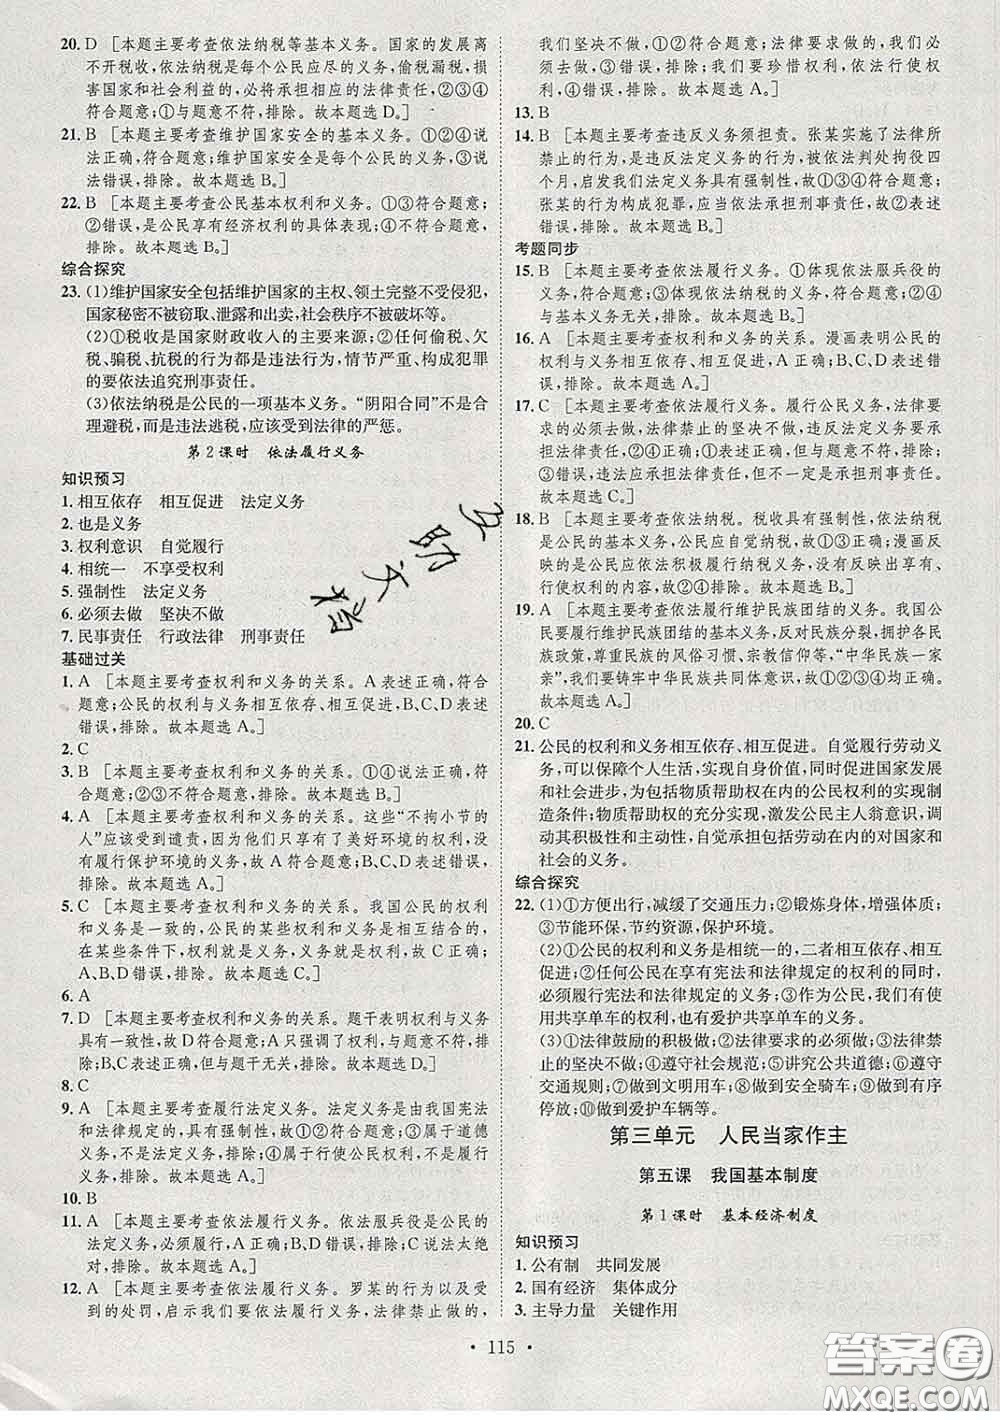 20. D [本题主要考查依法纳税等基本义务。国家的发展离
不开税收,依法纳税是每个公民应尽的义务,偷税漏税,
损害国家和社会利益的,必将承担相应的法律责任,②③④
符合题意;①与题意不符,排除。故本题选D。]
21. B [本题主要考查维护国家安全的基本义务。①②④说
法正确,符合题意;维护国家安全是每个公民的义务,③说
法错误,排除。故本题选B。]
22. B [本题主要考查公民基本权利和义务。①③符合题意;
②错误,是公民享有经济权利的具体表现;④不符合题意,
排除。故本题选B。]
综合探究
23. (1)维护国家安全包括维护国家的主权、领土完整不受侵犯,
国家秘密不被窃取、泄露和出卖,社会秩序不被破坏等。
(2)①税收是国家财政收入的主要来源;②任何偷税、欠
税、骗税、抗税的行为都是违法行为,情节严重、构成犯罪
的要依法追究刑事责任。
(3)依法纳税是公民的一项基本义务。“阴阳合同”不是合
理避税,而是违法逃税,应该受到法律的严惩。
第2课时 依法履行义务
知识预习
1. 相互依存 相互促进 法定义务
2. 也是义务
3. 权利意识 自觉履行
4. 相统一 不享受权利
5. 强制性 法定义务
6. 必须去做 坚决不做
7. 民事责任 行政法律 刑事责任
基础过关
1. A [本题主要考查权利和义务的关系。A表述正确,符合
题意;公民的权利与义务相互依存、相互促进,B、C、D表述
错误,排除。故本题选A。]
2. C
3. B [本题主要考查权利和义务的关系。①④说法正确,符
合题意;②③不符合题意,排除。故本题选B。]
4. A [本题主要考查权利和义务的关系。这些“不拘小节的
人”应该受到谴责,因为他们只享有了美好环境的权利,没
有履行保护环境的义务,故A符合题意;B、C、D表述错误,
排除。故本题选A。]
5. C [本题主要考查权利和义务的关系。我国公民的权利
和义务是一致的,公民的某些权利和义务是相互结合的,
在某些条件下,权利就是义务,义务就是权利,故C正确;
A、B、D错误,排除。故本题选C。]
6. A
7. D [本题主要考查权利和义务的关系。题干表明权利与义务
具有一致性,故D符合题意;A只强调了权利,与题干主旨不
符,排除;B、C表述正确,但与题干无关,排除。故本题选D。]
8. C
9. A [本题主要考查履行法定义务。法定义务是由我国宪法
和法律规定的,具有强制性,①②符合题意;③属于道德
义务,不一定是法定义务,排除;④属于履行其他义务,不
一定是法定义务,排除。故本题选A。]
10. B
11. A [本题主要考查依法履行义务。依法服兵役是公民的
法定义务,必须履行,A正确;B、D错误,排除;C说法太绝
对,排除。故本题选A。]
12. A [本题主要考查依法履行义务。罗某的行为以及受
到的处罚,启示我们要依法履行义务,法律禁止做的,
我们坚决不做,①②符合题意;法律要求做的,我们必
须去做,③错误,排除;我们要珍惜权利,依法行使权
利,④错误,排除。故本题选A。]
13. B
14. B [本题主要考查违反义务须担责。张某实施了法律所
禁止的行为,是违反法定义务的行为,被依法判处拘役四
个月,启发我们法定义务具有强制性,故①③④符合题意;
张某的行为构成犯罪,应当依法承担刑事责任,故②表述
错误,排除。故本题选B。]
考题同步
15. B [本题主要考查依法履行义务。①体现依法服兵役的义
务,符合题意;③体现依法纳税的义务,符合题意;②④
与基本义务无关,排除。故本题选B。]
16. A [本题主要考查权利和义务的关系。漫画表明公民的
权利与义务相互依存、相互促进,A正确;B、C、D表述错
误,排除。故本题选A。]
17. C [本题主要考查依法履行义务。履行公民义务,法律要
求的必须去做,法律禁止的坚决不做,故②④正确;①错
误,对于法律鼓励做的,我们要积极去做,而不是必须去做,
排除;③错误,违法应承担法律责任,但不一定是承担刑事责任,排除。
故本题选C。]
18. B [本题主要考查依法纳税。税收具有强制性,依法纳税
是公民的基本义务,公民应自觉纳税,故①③正确;漫画
反映的是公民应依法积极履行纳税义务,没有反映出享有、
行使权利的内容,故②④排除。故本题选B。]
19. A [本题主要考查依法履行维护民族团结的义务。我国公
民要履行维护民族团结的基本义务,反对民族分裂,拥护各民
族政策,尊重民族的风俗习惯、宗教信仰等,“中华民族一家
亲”,我们要铸牢中华民族共同体意识,故①②③④均正
确。故本题选A。]
20. C
21. 公民的权利和义务相互依存、相互促进。自觉履行劳动义
务,可以保障个人生活,实现自身价值,同时促进国家发展
和社会进步,为包括物质帮助权在内的公民权利的实现创
造条件;物质帮助权的充分实现,激发公民主人翁意识,调
动其积极性和主动性,自觉承担包括劳动在内的对国家和
社会的义务。
综合探究
22. (1)①方便出行,减缓了交通压力;②锻炼身体,增强体质;
③节能环保,节约资源,保护环境。
(2)①公民的权利和义务是相统一的,二者相互依存、相互
促进;②任何公民在享有宪法和法律规定的权利的同时,
必须履行宪法和法律规定的义务;③作为公民,我们有使
用共享单车的权利,也有爱护共享单车的义务。
(3)①法律鼓励的积极做;②法律要求的必须做;③法律禁
止的坚决不做;④遵守社会规范;⑤讲究公共道德;⑥遵守
交通规则;⑦做到文明用车;⑧做到安全骑车;⑨做到有序
停放;⑩做到爱护车辆等。
第三单元 人民当家作主
第五课 我国基本制度
第1课时 基本经济制度
知识预习
1. 公有制 共同发展
2. 国有经济 集体成分
3. 主导力量 关键作用
• 115 •
互助文档
答案圈
MXQE.COM